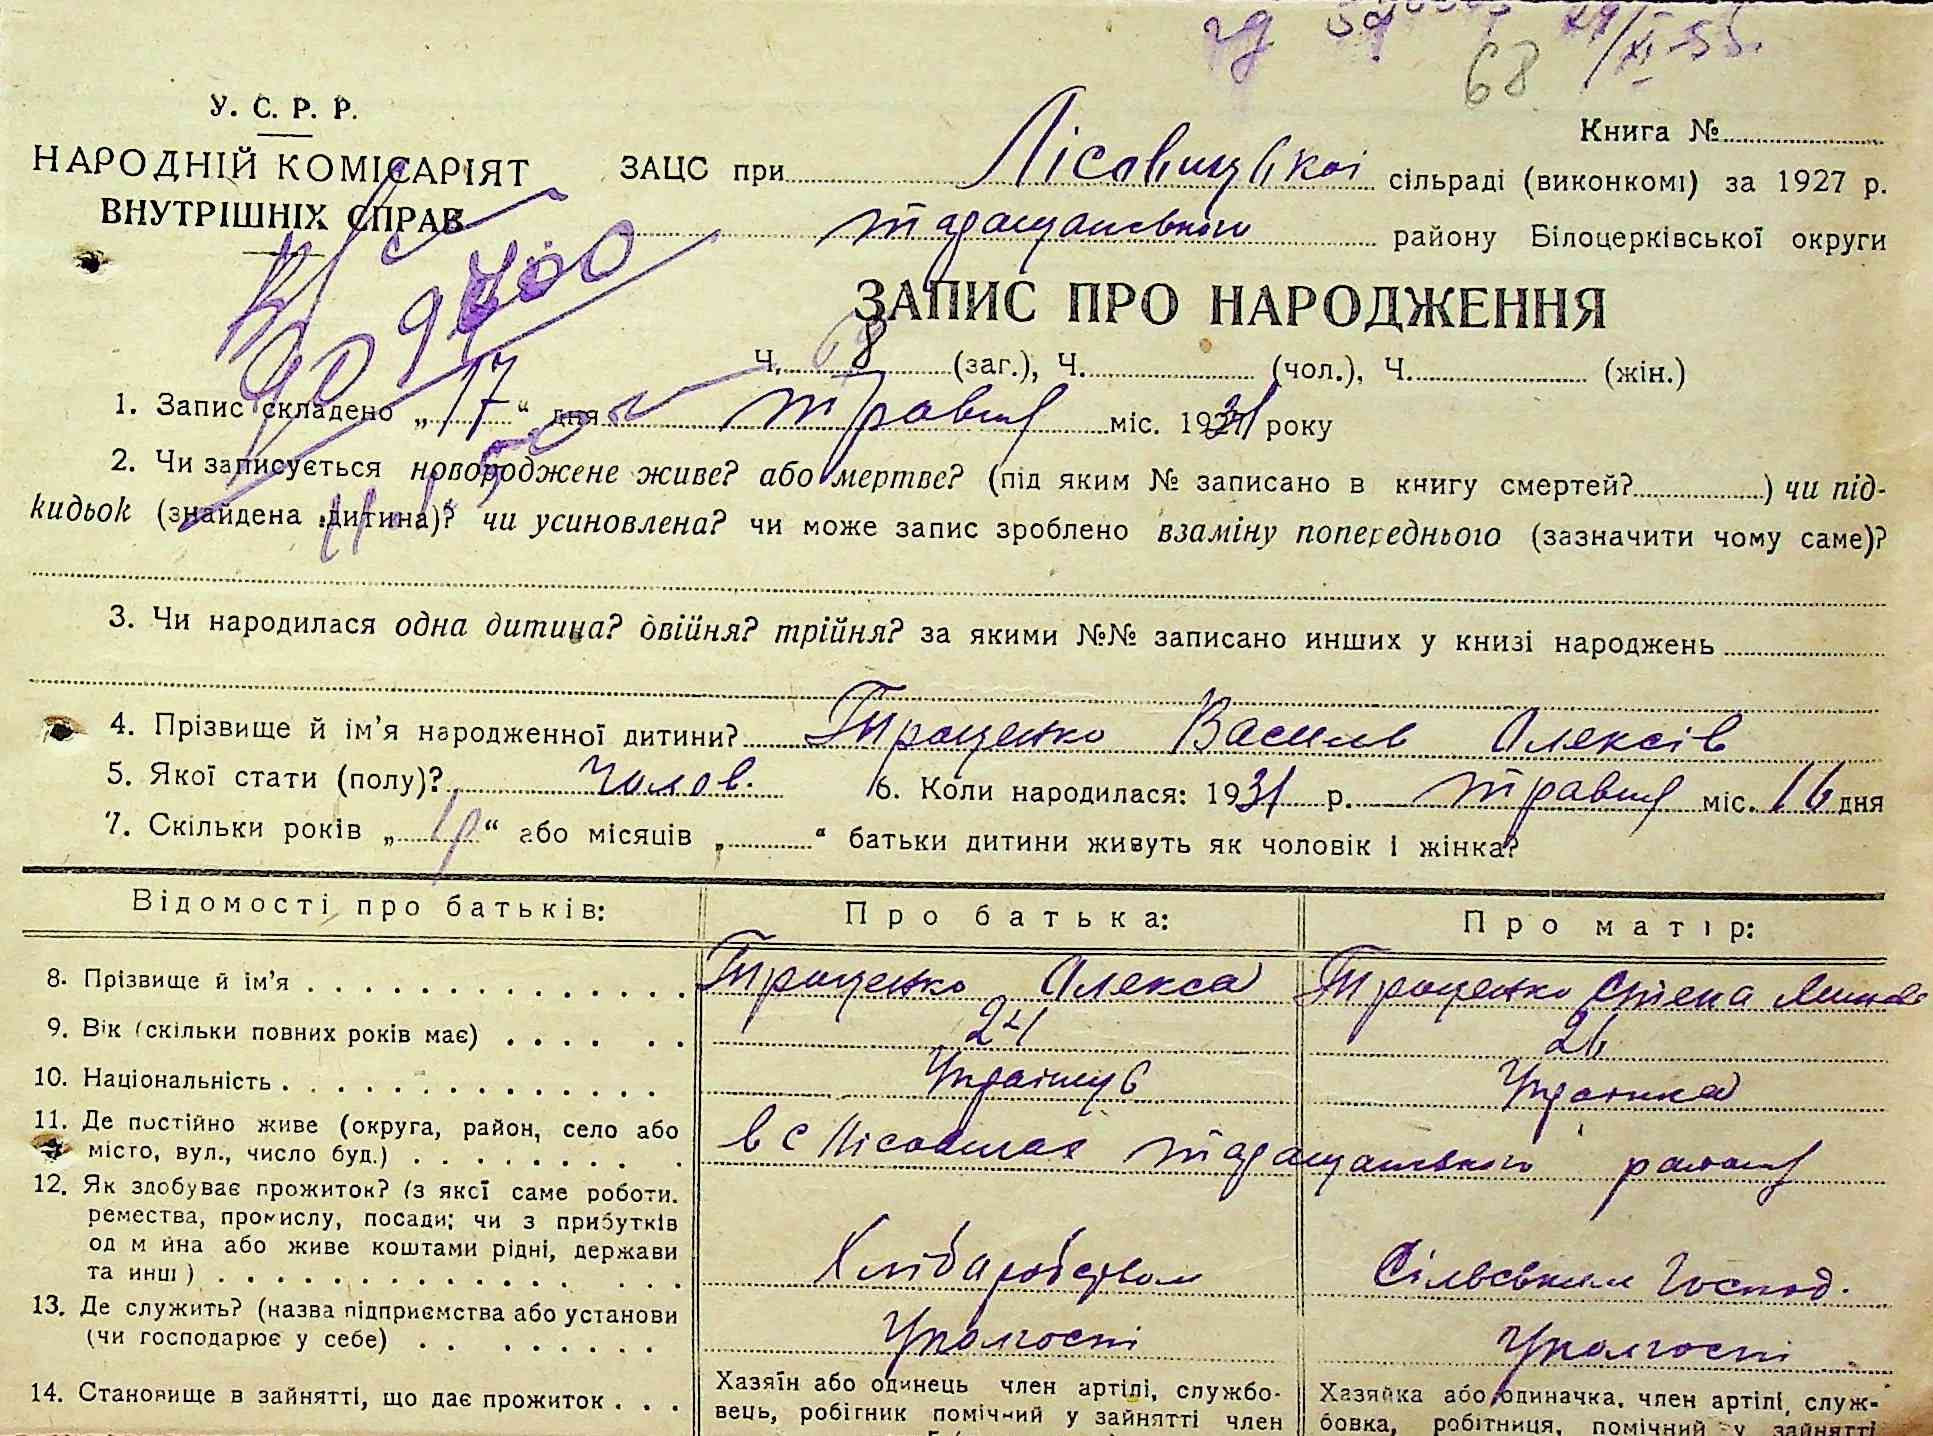 29/XI-55.
68
У. С. Р. Р.
НАРОДНІЙ КОМІСАРІЯТ
ВНУТРІШНІХ СПРАВ
Книга №
ЗАЦС при Лісовицької сільраді (виконкомі) за 1927 р.
Таращанського району Білоцерківської округи
ЗАПИС ПРО НАРОДЖЕННЯ
Ч. 68 (заг.), Ч. (чол.), Ч. (жін.)
1. Запис складено „17“ дня травня міс. 1931 року
2. Чи записується новороджене живе? або мертве? (під яким № записано в книгу смертей?) чи під-
кидьок (знайдена дитина)? чи усиновлена? чи може запис зроблено взаміну попереднього (зазначити чому саме)?
3. Чи народилася одна дитина? двійня? трійня? за якими №№ записано инших у книзі народжень
4. Прізвище й ім’я народженної дитини? Троценко Василь Олексів
5. Якої стати (полу)? чолов. 6. Коли народилася: 1931 р. травня міс. 16 дня
7. Скільки років „“ або місяців „“ батьки дитини живуть як чоловік і жінка?
Відомості про батьків: Про батька: Про матір:
8. Прізвище й ім’я Троценко Олекса Троценко
9. Вік (скільки повних років має) 24 26
10. Національність Українць Українка
11. Де постійно живе (округа, район, село або
місто, вул., число буд.) в с Лісовичах Таращанського району
12. Як здобуває прожиток? (з якої саме роботи.
ремества, промислу, посади; чи з прибутків
од м йна або живе коштами рідні, держави
та инш) Хліборобством Сільським господ.
13. Де служить? (назва підприємства або установи
(чи господарює у себе) Уколгоспі Уколгоспі
14. Становище в зайнятті, що дає прожиток
Хазяїн або одинець член артілі, службо-
вець, робітник помічний у зайнятті член
Хазяйка або одиначка, член артілі, служ-
бовка, робітниця, помічний у зайнятті